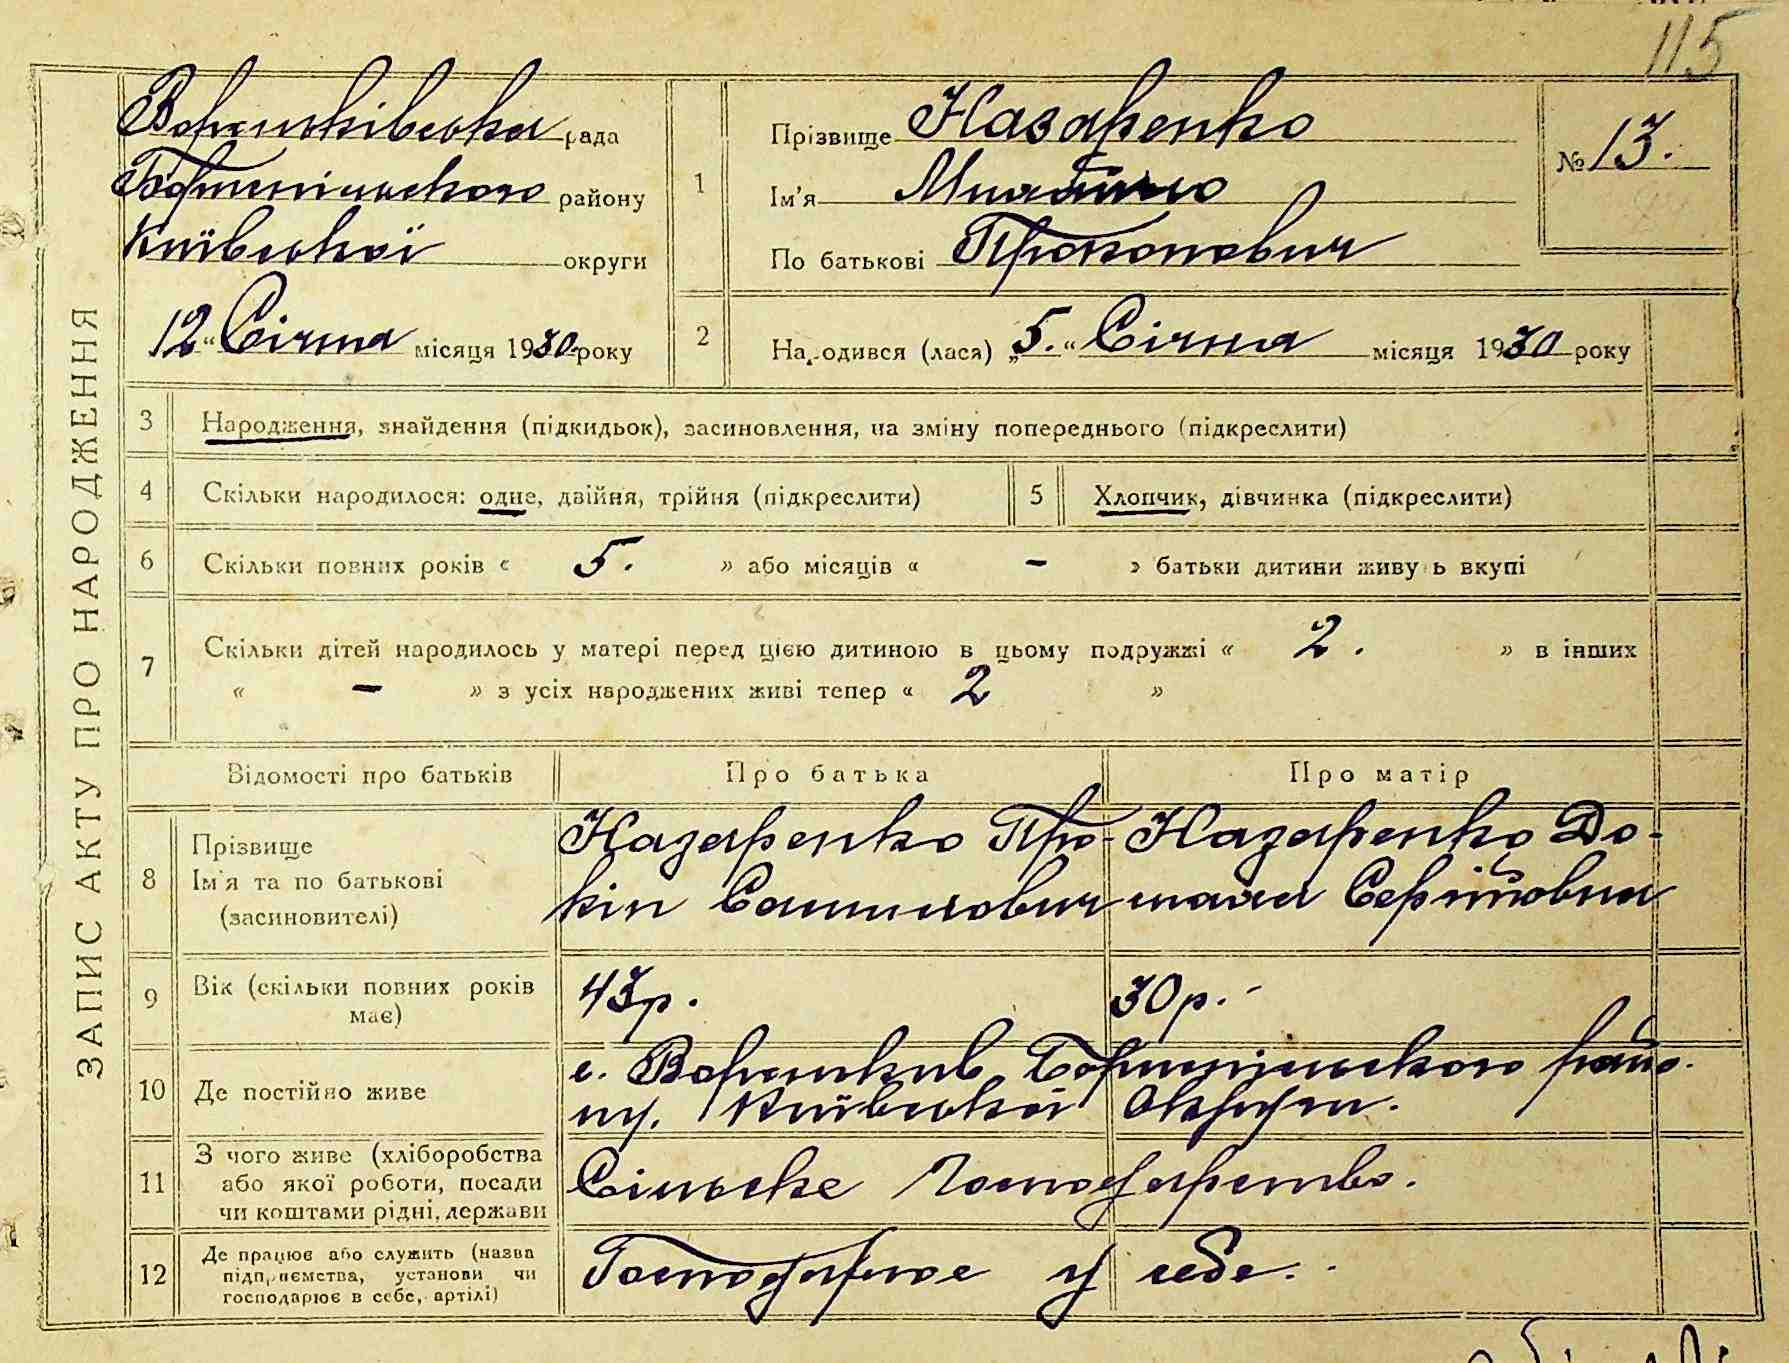 115
Вороньківська рада
Бориспільського району
Київської округи
12 „ Січня місяця 1930 року
1
Прізвище Назаренко
Ім'я
По батькові Прокопович
№ 13.
2
Народився (лася) „5.“ Січня місяця 1930 року
ЗАПИС АКТУ ПРО НАРОДЖЕННЯ
3 Народження, знайдення (підкидьок), засиновлення, на зміну попереднього (підкреслити)
4 Скільки народилося: одне, двійня, трійня (підкреслити) 5 Хлопчик, дівчинка (підкреслити)
6 Скільки повних років « 5. » або місяців « – » батьки дитини живуть вкупі
7 Скільки дітей народилось у матері перед цією дитиною в цьому подружжі « 2. » в інших
« – » з усіх народжених живі тепер « 2 »
Відомості про батьків Про батька Про матір
8 Прізвище
Ім'я та по батькові
(засиновителі)
Назаренко Про-
кіп
Назаренко До-
Сергіївна
9 Вік (скільки повних років
має)
43 р. 30 р.
10 Де постійно живе
с. Вороньків Бориспільського райо-
ну. Київської Округи.
11 З чого живе (хліборобства
або якої роботи, посади
чи коштами рідні, держави
Сільське Господарство.
12 Де працює або служить (назва
підприємства, установи чи
господарює в себе, артілі)
Господарює у себе.